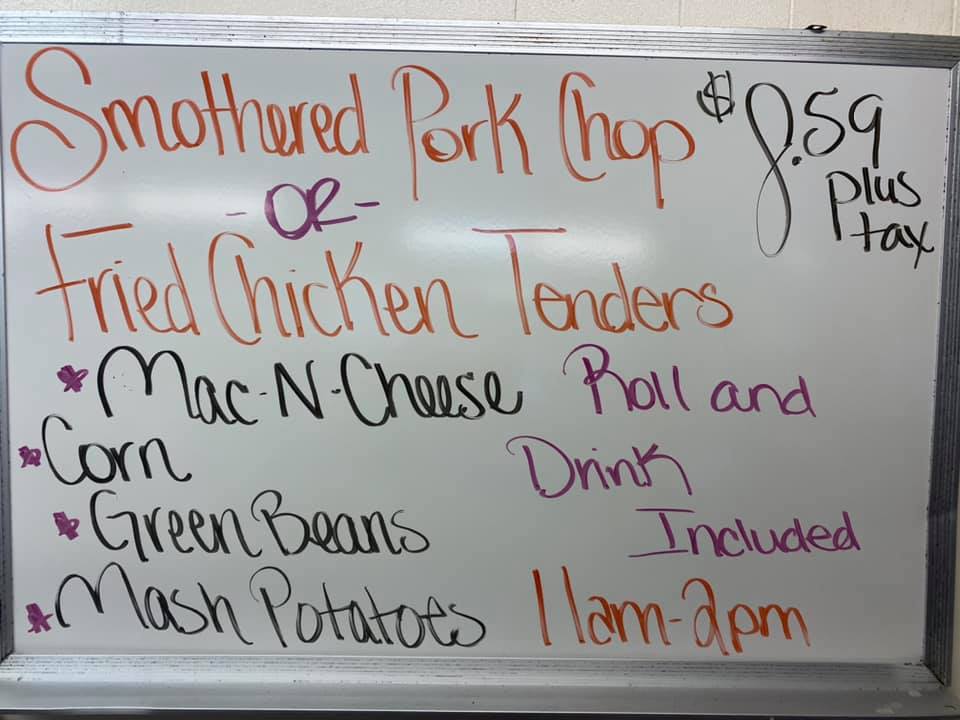 Smothered Pork Chop $8.59
plus
tax
-OR-
Fried Chicken Tenders
* Mac-N-Cheese Roll and
* Corn Drink
* Green Beans Included
* Mash Potatoes 11am-2pm